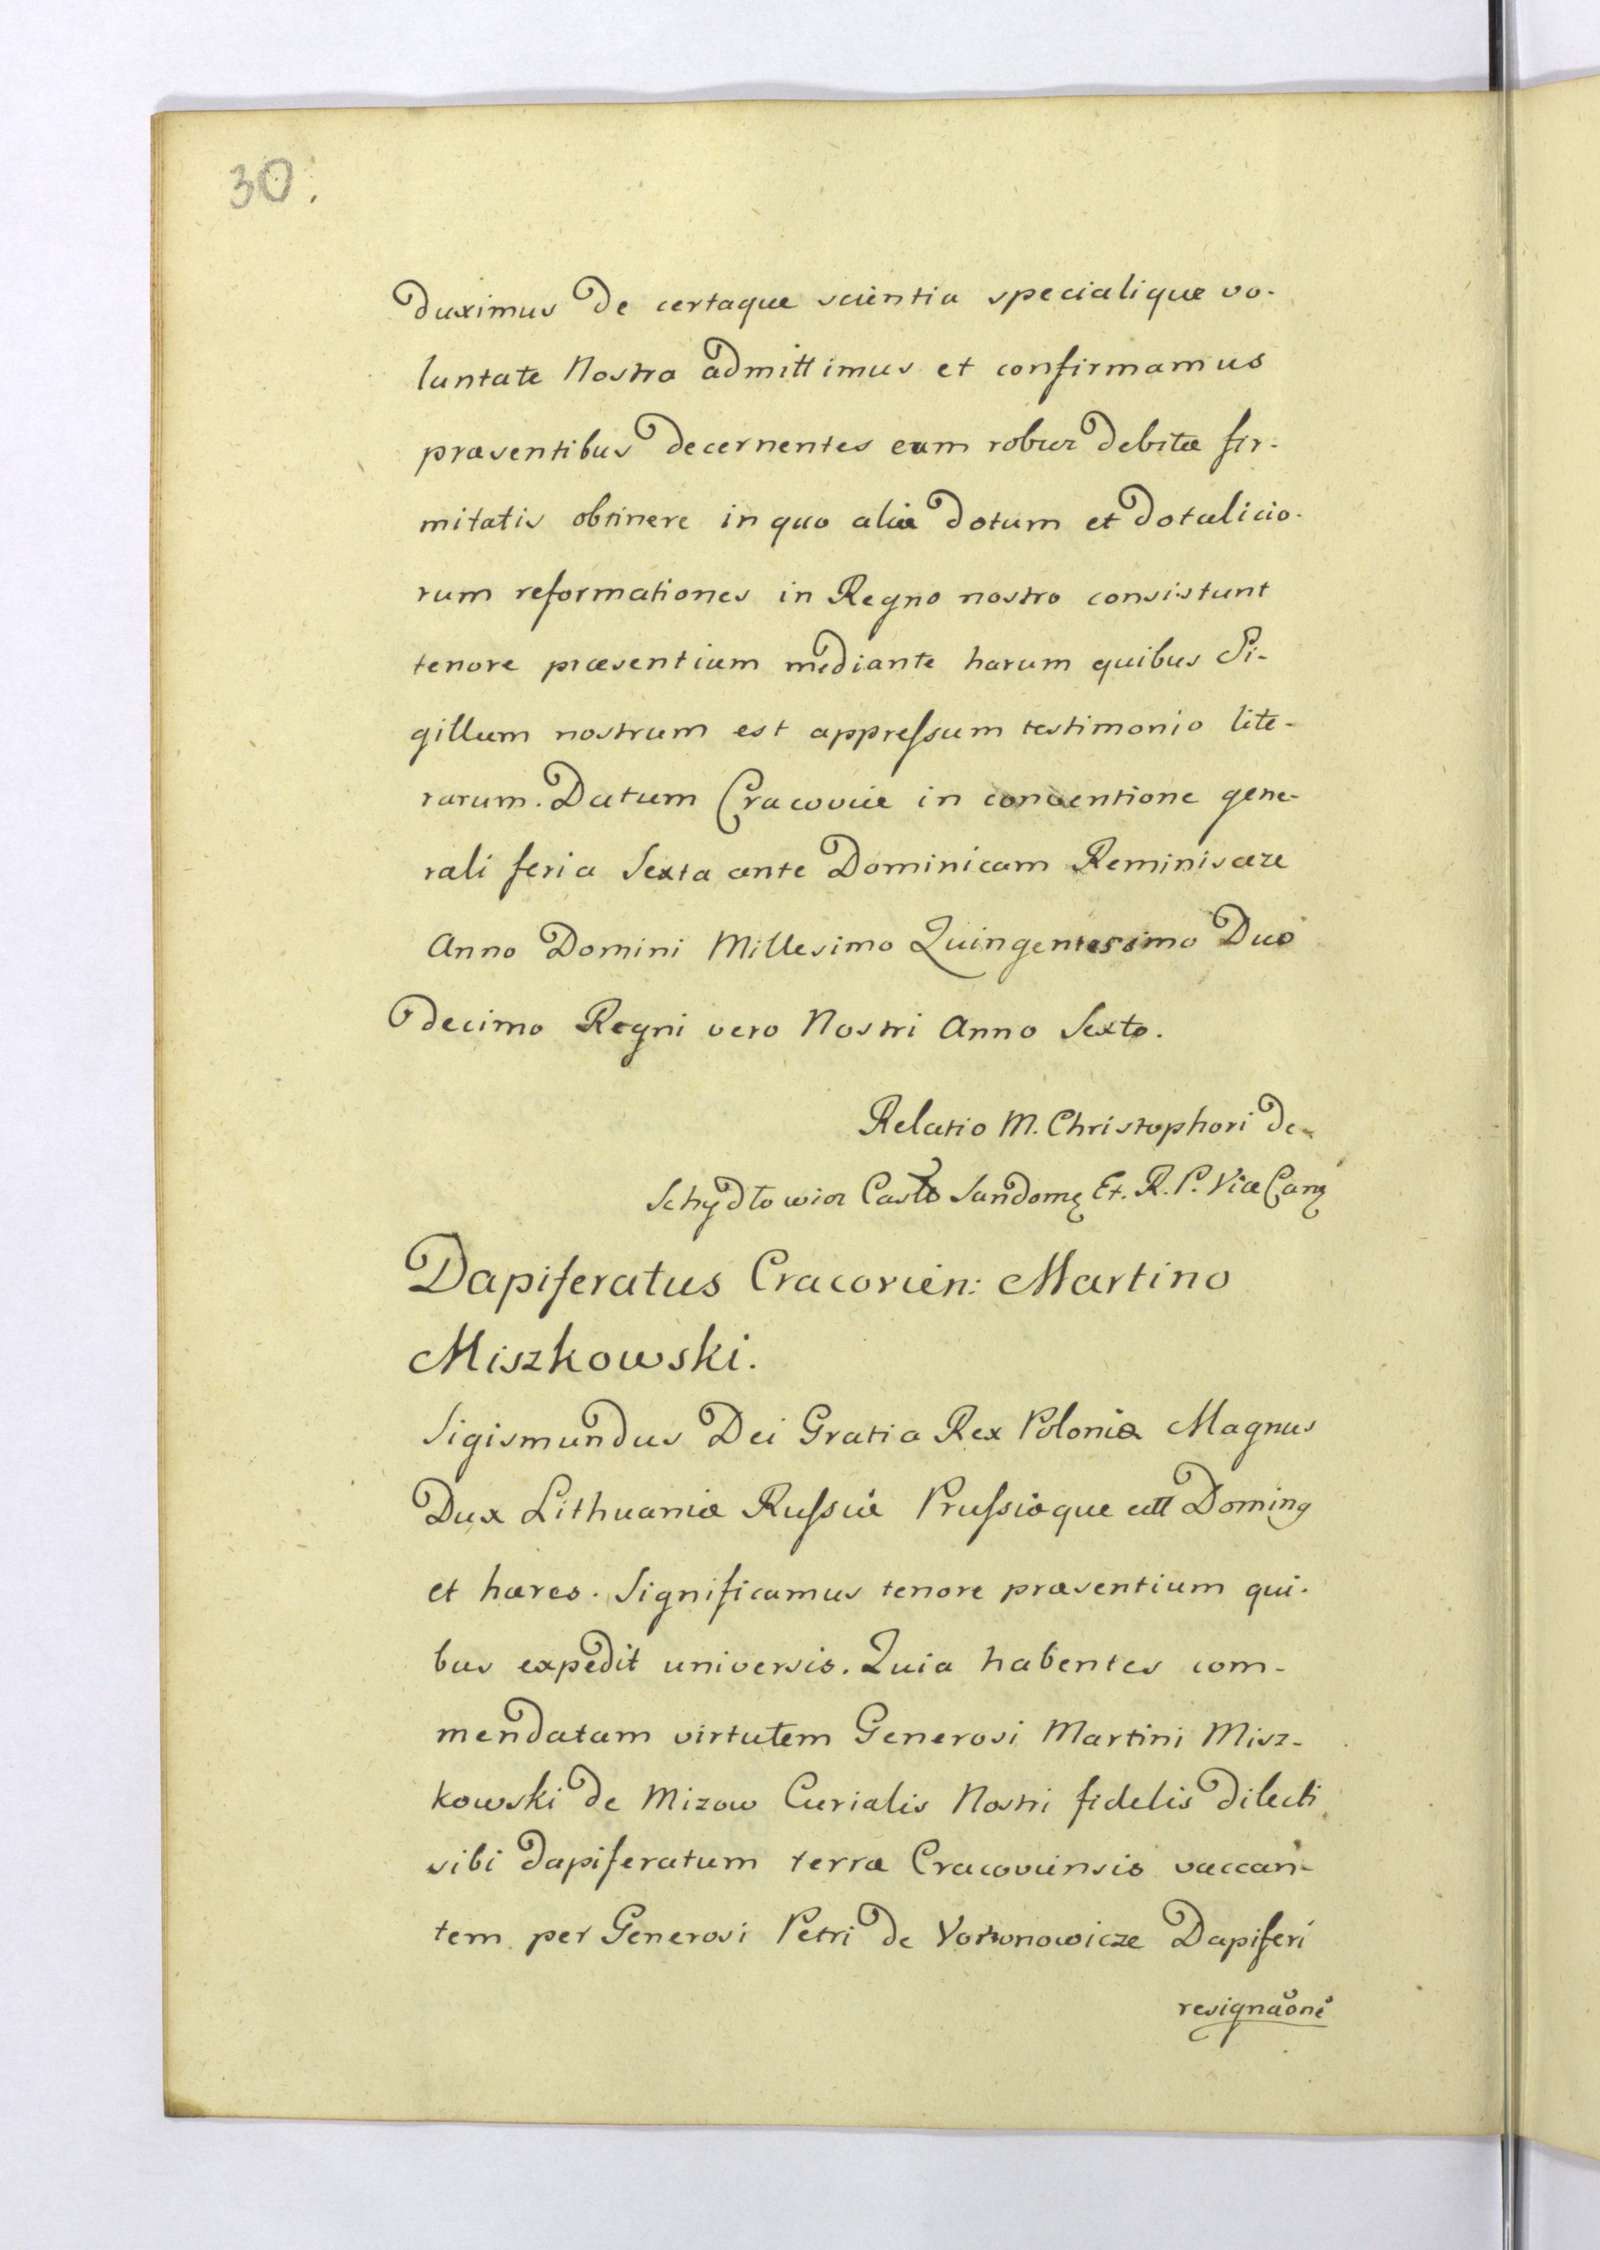 30.
duximus de certaque scientia specialique vo-
luntate Nostra admittimus et confirmamus
præsentibus decernentes eam robur debitæ fir-
mitatis obtinere in quo aliæ dotum et dotalicio-
rum reformationes in Regno nostro consistunt
tenore præsentium mediante harum quibus Si-
gillum nostrum est appressum testimonio lite-
rarum. Datum Cracoviæ in conventione gene-
rali feria Sexta ante Dominicam Reminiscere
Anno Domini Millesimo Quingentesimo Duo
decimo Regni vero Nostri Anno Sexto.
Relatio M. Christophori de
Schydłowicz Sandom Et. R. P. Vice Canc
Dapiferatus Cracovien: Martino
Miszkowski.
Sigismundus Dei Gratia Rex Poloniæ Magnus
Dux Lithuaniæ Russiæ Prussiæque Dominq
et hæres. Significamus tenore præsentium qui-
bus expedit universis. Quia habentes com-
mendatam virtutem Generosi Martini Misz-
kowski de Mizow Curialis Nostri fidelis dilecti
sibi dapiferatum terræ Cracoviensis vaccan-
tem per Generosi Petri de Dapiferi
resignaoni